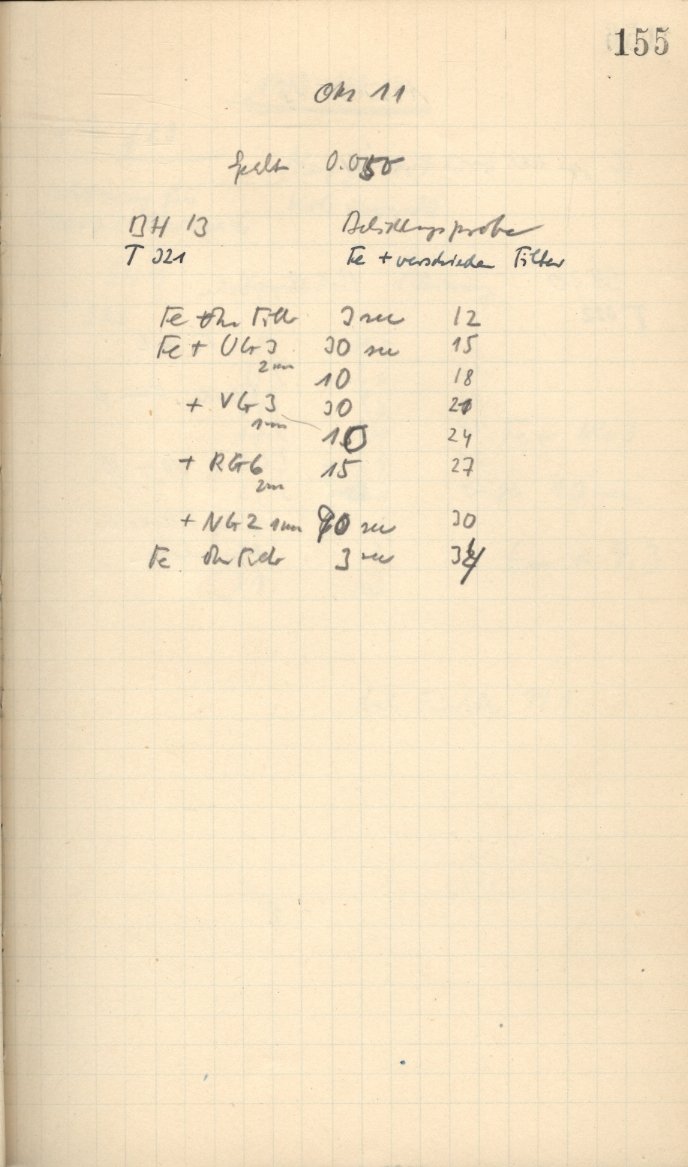 155
Okt 11
Spalt 0.050
BH 13 Belichtungsprobe
T 321 Fe + verschieden Filter
Fe ohn Filt 3 sec 12
Fe + UG 3 2mm 30 sec 15
10 18
+ VG 3 1mm 30 21
10 24
+ RG6 2mm 15 27
+ NG2 1mm 90 sec 30
Fe ohn Filt 3 sec